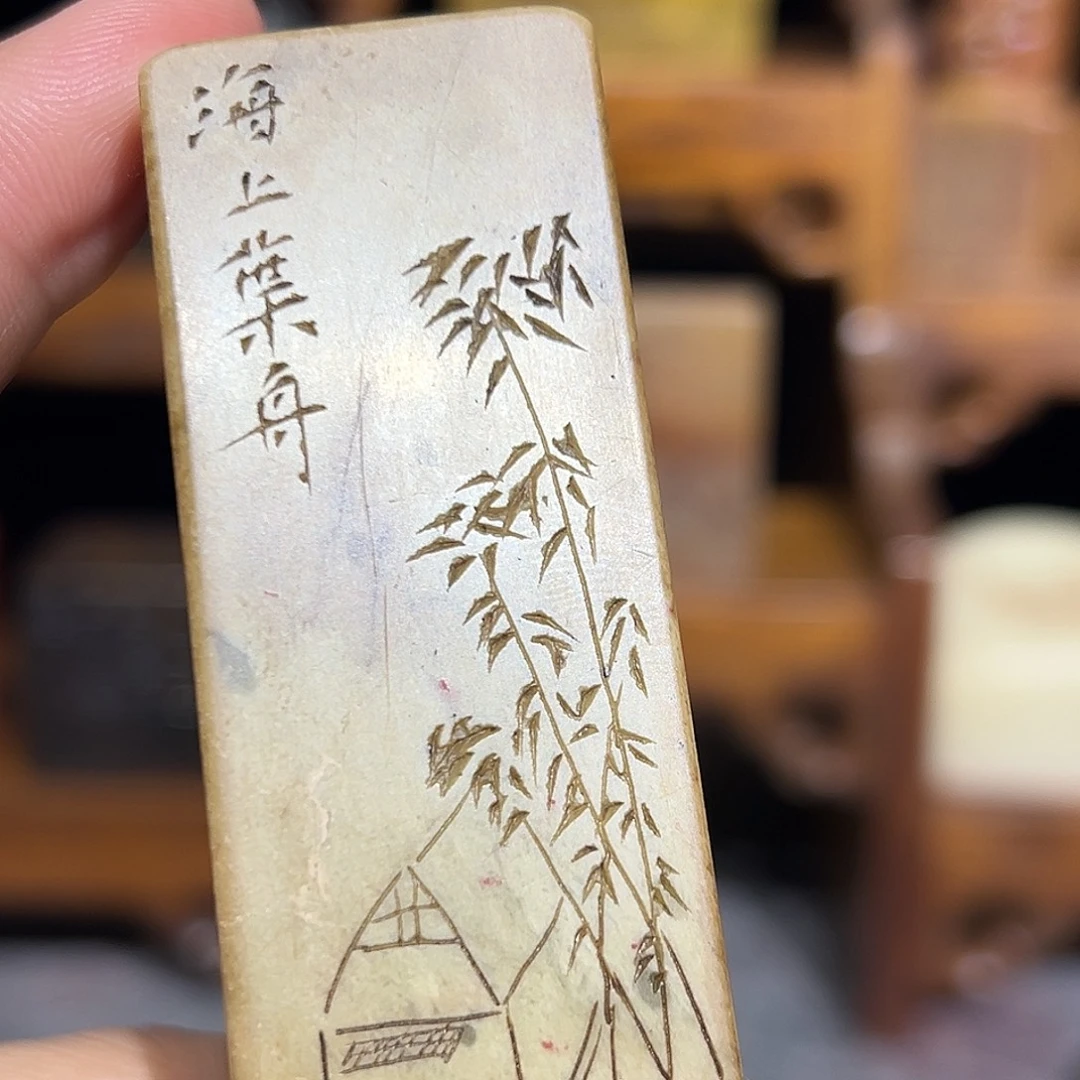 海上葉舟